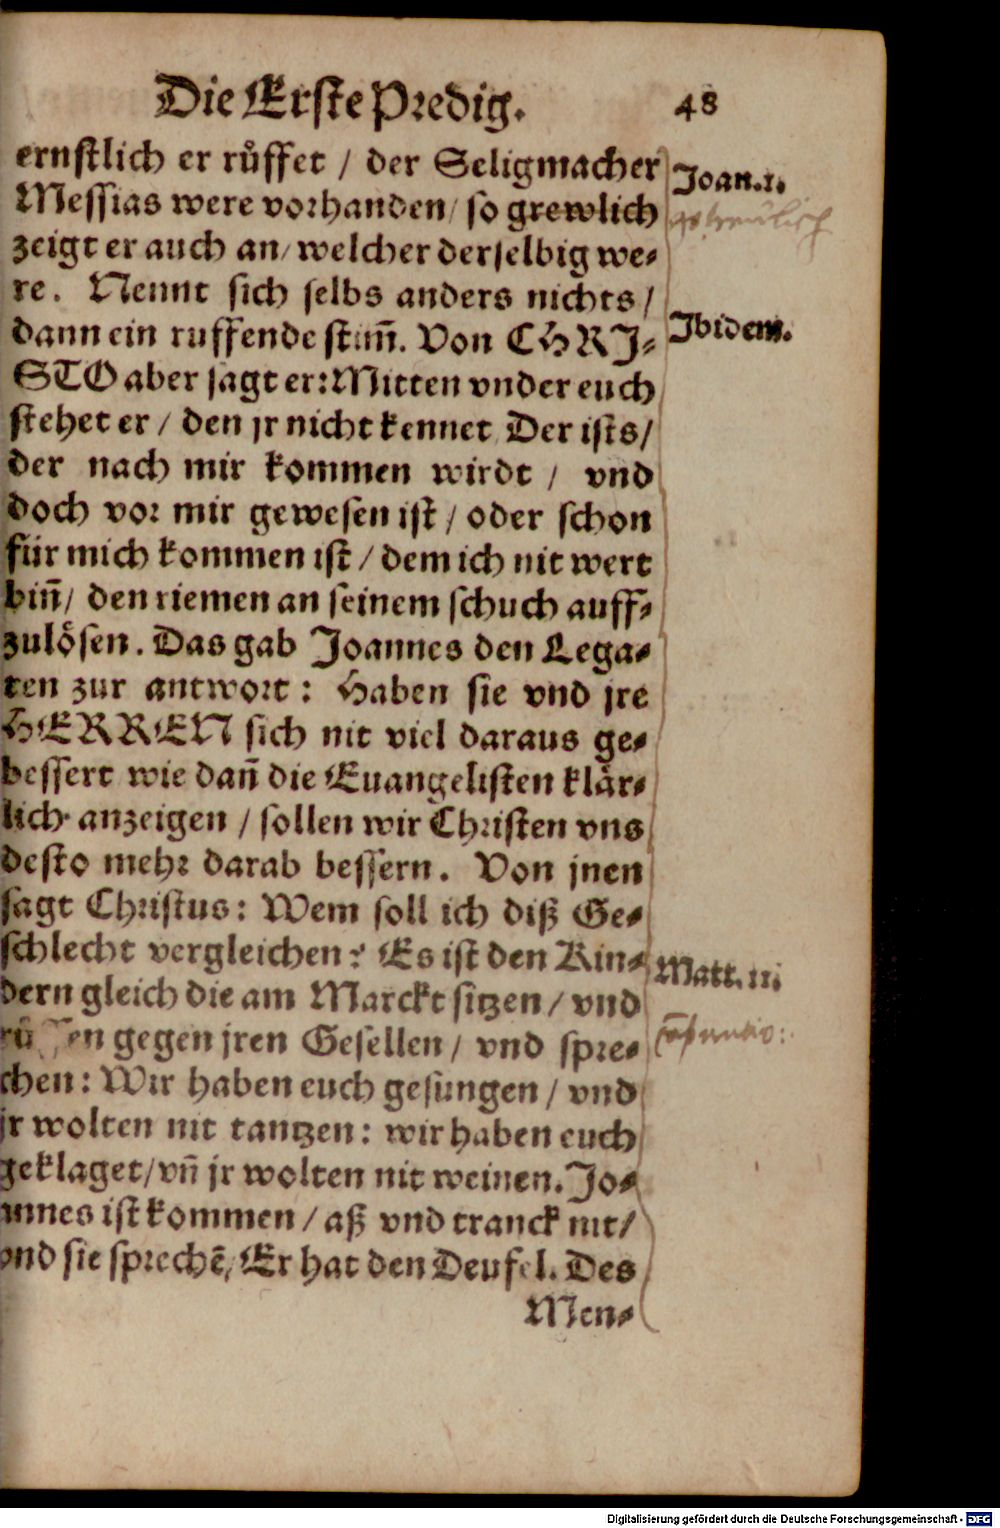 Die Erste Predig. 48
ernstlich er růffet / der Seligmacher Joan.1.
Messias were vorhanden / so grewlich getreulich
zeigt er auch an / welcher derselbig we⸗
re. Nennt sich selbs anders nichts /
dann ein ruffende stim̄. Von CHRI⸗ Ibidem.
STO aber sagt er: Mitten vnder euch
stehet er / den jr nicht kennet Der ists /
der nach mir kommen wirdt / vnd
doch vor mir gewesen ist / oder schon
für mich kommen ist / dem ich nit wert
bin̄ / den riemen an seinem schuch auff⸗
zulösen. Das gab Joannes den Lega⸗
ten zur antwort: Haben sie vnd jre
HERREN sich nit viel daraus ge⸗
bessert wie dan̄ die Euangelisten klär⸗
lich anzeigen / sollen wir Christen vns
desto mehr darab bessern. Von jnen
sagt Christus: Wem soll ich diß Ge⸗
schlecht vergleichen? Es ist den Kin⸗ Matt.11.
dern gleich die am Marckt sitzen / vnd
gegen jren Gesellen / vnd spre⸗
chen: Wir haben euch gesungen / vnd
jr wolten nit tantzen: wir haben euch
geklaget / vn̄ jr wolten nit weinen. Jo⸗
annes ist kommen / aß vnd tranck nit /
vnd sie sprechē / Er hat den Deufel. Des
Men⸗
Digitalisierung gefördert durch die Deutsche Forschungsgemeinschaft - DFG